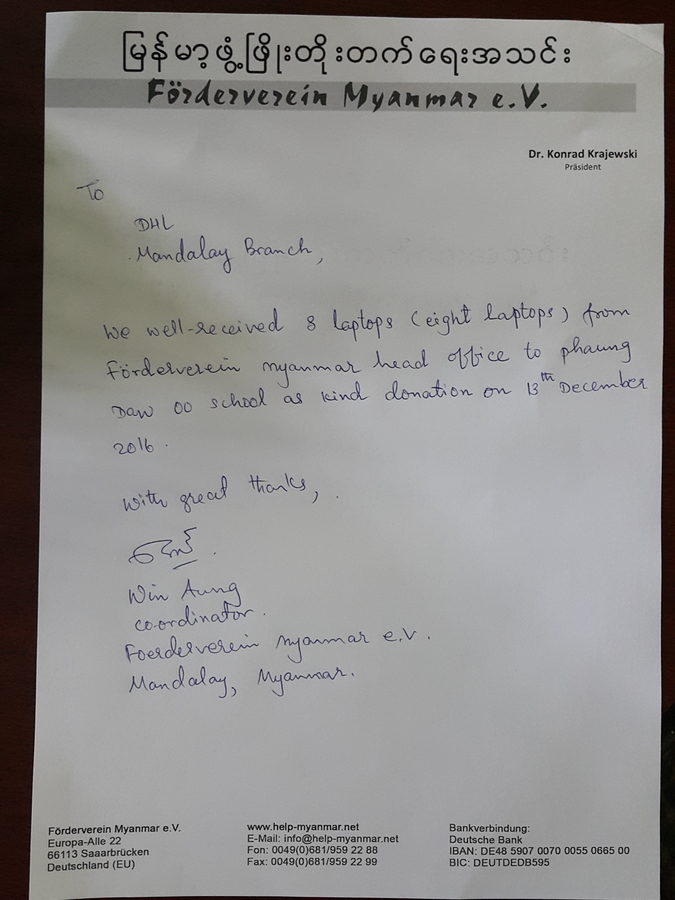 မြန်မာ့ဖွံ့ဖြိုးတိုးတက်ရေးအသင်း
Förderverein Myanmar e.V.
Dr. Konrad Krajewski
Präsident
To
DHL
Mandalay Branch,
We well-received 8 laptops (eight laptops) from
Förderverein myanmar head office to phaung
Daw oo school as kind donation on 13th December
2016.
With great thanks,
Win Aung
coordinator.
Foerderverein myanmar e.V.
Mandalay, Myanmar.
Förderverein Myanmar e.V.
Europa-Alle 22
66113 Saaarbrücken
Deutschland (EU)
www.help-myanmar.net
E-Mail: info@help-myanmar.net
Fon: 0049(0)681/959 22 88
Fax: 0049(0)681/959 22 99
Bankverbindung:
Deutsche Bank
IBAN: DE48 5907 0070 0055 0665 00
BIC: DEUTDEDB595